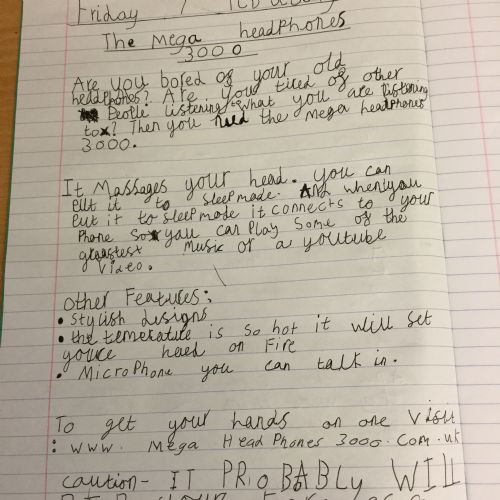 Friday
The Mega headphones
3000
Are you bored of your old
headphones? Are you tired of other
People listening to what you are listening
to? Then you need the Mega headphones
3000.
It Massages your head. you can
Put it to sleep mode. And when you
Put it to sleep mode it connects to your
Phone so you can Play some of the
greatest Music or a youtube
Video.
Other Features:
• Stylish designs
• the temerature is so hot it will set
youre head on Fire
• MicroPhone you can talk in.
To get your hands on one visit
: www. Mega Head Phones 3000. com. uk
caution- IT PROBABLY WILL